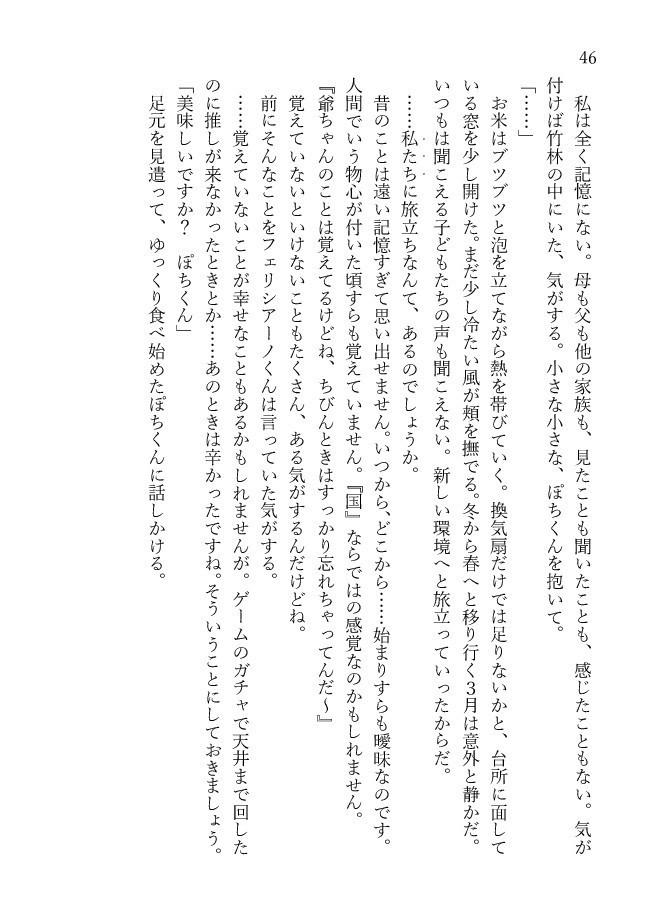 46
　私は全く記憶にない。母も父も他の家族も、見たことも聞いたことも、感じたこともない。気が
付けば竹林の中にいた、気がする。小さな小さな、ぽちくんを抱いて。
「……」
　お米はブツブツと泡を立てながら熱を帯びていく。換気扇だけでは足りないかと、台所に面して
いる窓を少し開けた。まだ少し冷たい風が頬を撫でる。冬から春へと移り行く３月は意外と静かだ。
いつもは聞こえる子どもたちの声も聞こえない。新しい環境へと旅立っていったからだ。
　……私たちに旅立ちなんて、あるのでしょうか。
　昔のことは遠い記憶すぎて思い出せません。いつから、どこから……始まりすらも曖昧なのです。
人間でいう物心が付いた頃すらも覚えていません。『国』ならではの感覚なのかもしれません。
『爺ちゃんのことは覚えてるけどね、ちびんときはすっかり忘れちゃってんだ〜』
　覚えていないといけないこともたくさん、ある気がするんだけどね。
　前にそんなことをフェリシアーノくんは言っていた気がする。
　……覚えていないことが幸せなこともあるかもしれませんが。ゲームのガチャで天井まで回した
のに推しが来なかったときとか……あのときは辛かったですね。そういうことにしておきましょう。
「美味しいですか？　ぽちくん」
　足元を見遣って、ゆっくり食べ始めたぽちくんに話しかける。